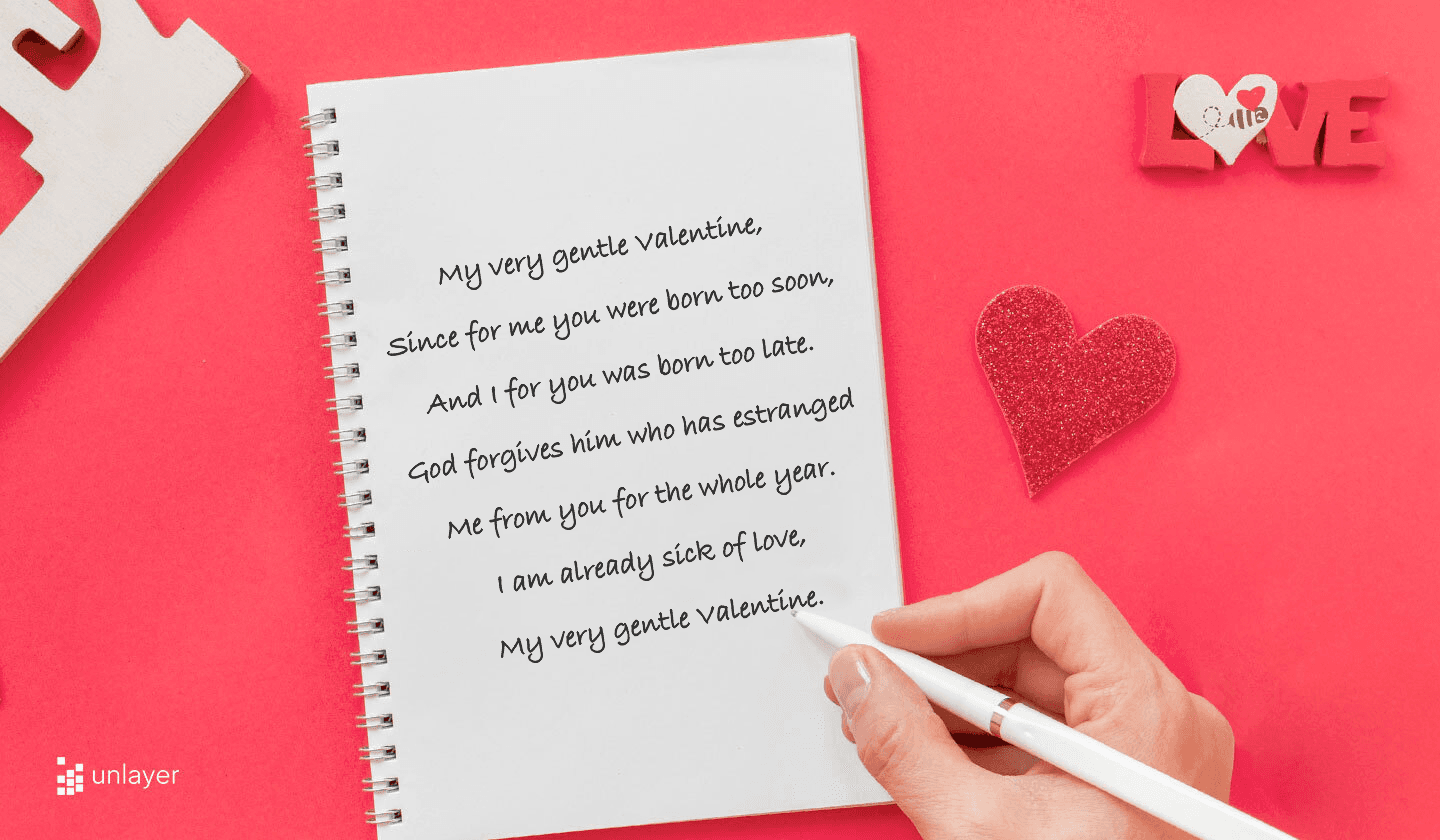 LOVE
My very gentle Valentine,
Since for me you were born too soon,
And I for you was born too late.
God forgives him who has estranged
Me from you for the whole year.
I am already sick of love,
My very gentle Valentine.
unlayer